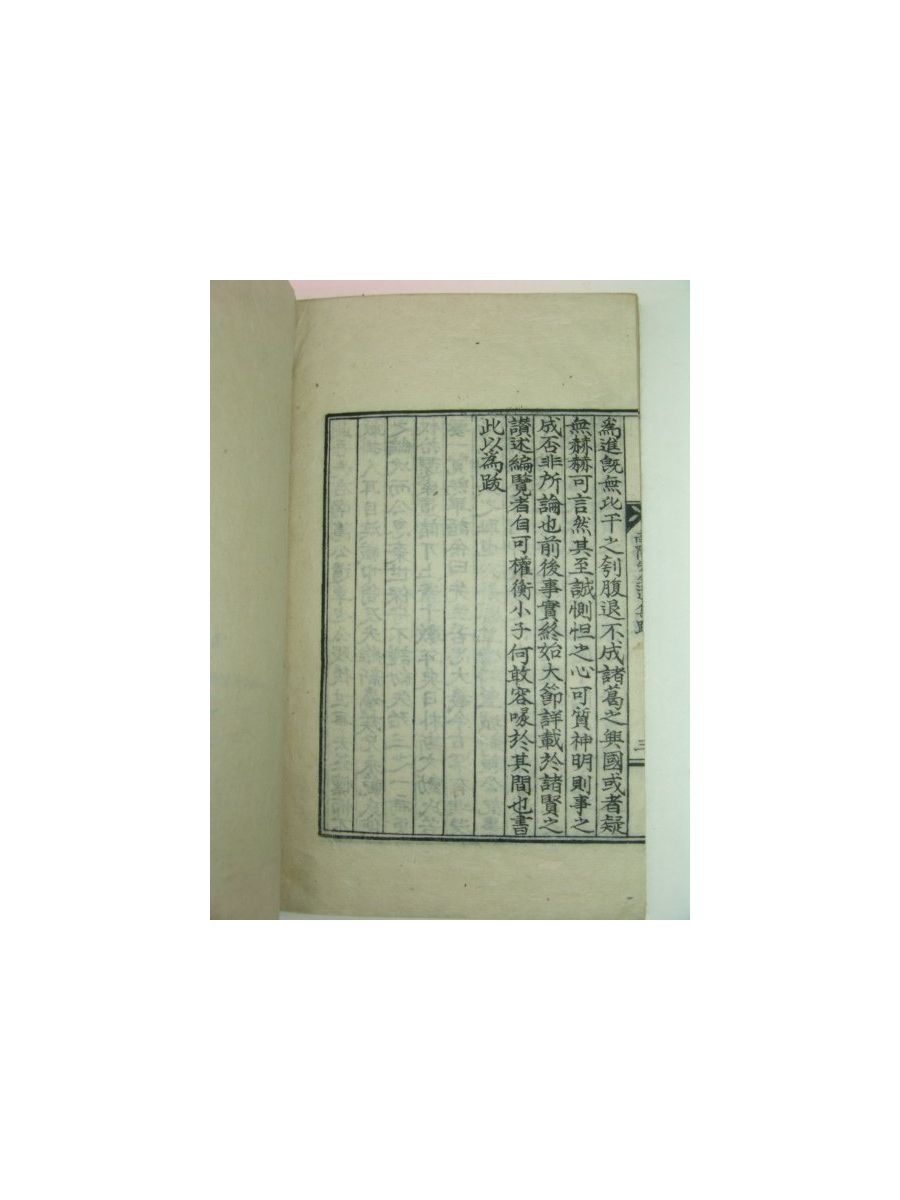 爲進旣無比干之刳腹退不成諸葛之興國或者疑
無赫赫可言然其至誠惻怛之心可質神明則事之
成否非所論也前後事實終始大節詳載於諸賢之
讃述編覽者自可權衡小子何敢容喙於其間也書
此以為跋
三